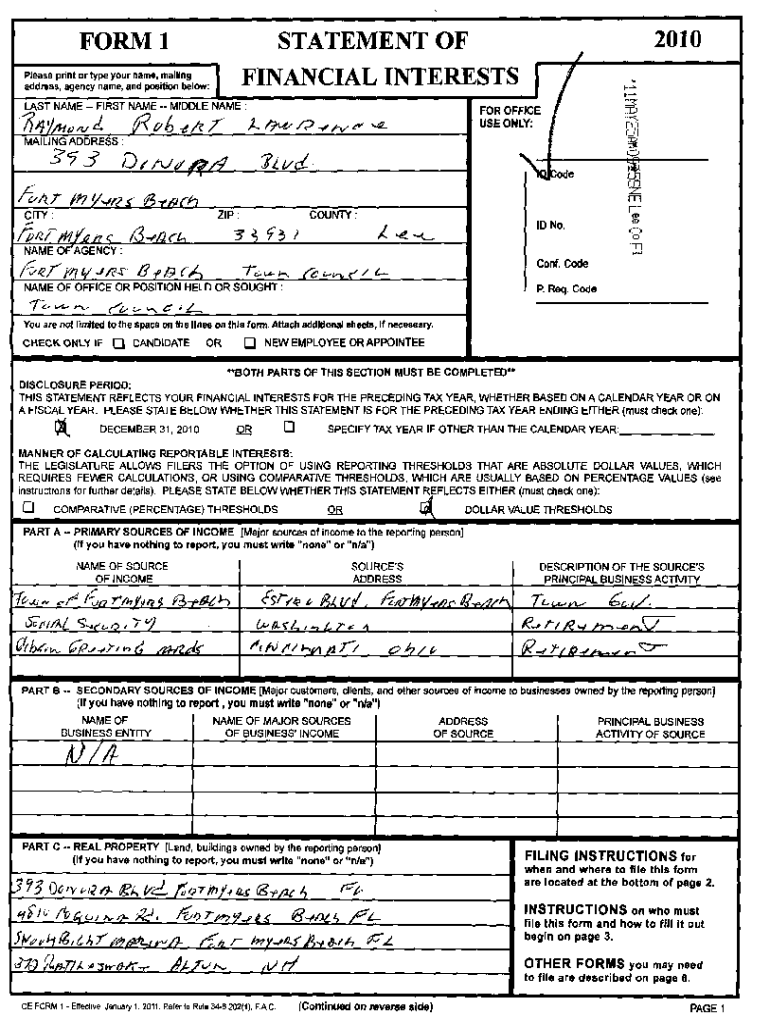 FORM 1
STATEMENT OF
2010
Please print or type your name, mailing
address, agency name, and position below:
FINANCIAL INTERESTS
LAST NAME -- FIRST NAME -- MIDDLE NAME :
RAYMOND Robert
MAILING ADDRESS :
393 DONORA Blvd
FORT MYERS BEACH
CITY : ZIP : COUNTY :
FORT MYERS BEACH 33931 Lee
NAME OF AGENCY :
FORT MYERS BEACH Town Council
NAME OF OFFICE OR POSITION HELD OR SOUGHT :
Town Council
You are not limited to the space on the lines on this form. Attach additional sheets, if necessary.
CHECK ONLY IF ☐ CANDIDATE OR ☐ NEW EMPLOYEE OR APPOINTEE
FOR OFFICE
USE ONLY:
ID Code
ID No.
Conf. Code
P. Req. Code
Lee Co Fl
**BOTH PARTS OF THIS SECTION MUST BE COMPLETED**
DISCLOSURE PERIOD:
THIS STATEMENT REFLECTS YOUR FINANCIAL INTERESTS FOR THE PRECEDING TAX YEAR, WHETHER BASED ON A CALENDAR YEAR OR ON
A FISCAL YEAR. PLEASE STATE BELOW WHETHER THIS STATEMENT IS FOR THE PRECEDING TAX YEAR ENDING EITHER (must check one):
☒ DECEMBER 31, 2010 OR ☐ SPECIFY TAX YEAR IF OTHER THAN THE CALENDAR YEAR:
MANNER OF CALCULATING REPORTABLE INTERESTS:
THE LEGISLATURE ALLOWS FILERS THE OPTION OF USING REPORTING THRESHOLDS THAT ARE ABSOLUTE DOLLAR VALUES, WHICH
REQUIRES FEWER CALCULATIONS, OR USING COMPARATIVE THRESHOLDS, WHICH ARE USUALLY BASED ON PERCENTAGE VALUES (see
instructions for further details). PLEASE STATE BELOW WHETHER THIS STATEMENT REFLECTS EITHER (must check one):
☐ COMPARATIVE (PERCENTAGE) THRESHOLDS OR ☒ DOLLAR VALUE THRESHOLDS
PART A -- PRIMARY SOURCES OF INCOME [Major sources of income to the reporting person]
(If you have nothing to report, you must write "none" or "n/a")
NAME OF SOURCE OF INCOME
SOURCE'S ADDRESS
DESCRIPTION OF THE SOURCE'S PRINCIPAL BUSINESS ACTIVITY
Town of Fort Myers Beach Estero Blvd, Fort Myers Beach Town Gov.
Social Security Washington Retirement
Gibson Greeting Cards Cincinnati Ohio Retirement
PART B -- SECONDARY SOURCES OF INCOME [Major customers, clients, and other sources of income to businesses owned by the reporting person]
(If you have nothing to report , you must write "none" or "n/a")
NAME OF BUSINESS ENTITY
NAME OF MAJOR SOURCES OF BUSINESS' INCOME
ADDRESS OF SOURCE
PRINCIPAL BUSINESS ACTIVITY OF SOURCE
N/A
PART C -- REAL PROPERTY [Land, buildings owned by the reporting person]
(If you have nothing to report, you must write "none" or "n/a")
393 Donora Blvd Fort Myers Beach FL
Rd. Fort Myers Beach FL
Marina Fort Myers Beach FL
Alton NH
FILING INSTRUCTIONS for
when and where to file this form
are located at the bottom of page 2.
INSTRUCTIONS on who must
file this form and how to fill it out
begin on page 3.
OTHER FORMS you may need
to file are described on page 6.
CE FORM 1 - Effective January 1, 2011. Refer to Rule 34-8.202(1), F.A.C. (Continued on reverse side) PAGE 1